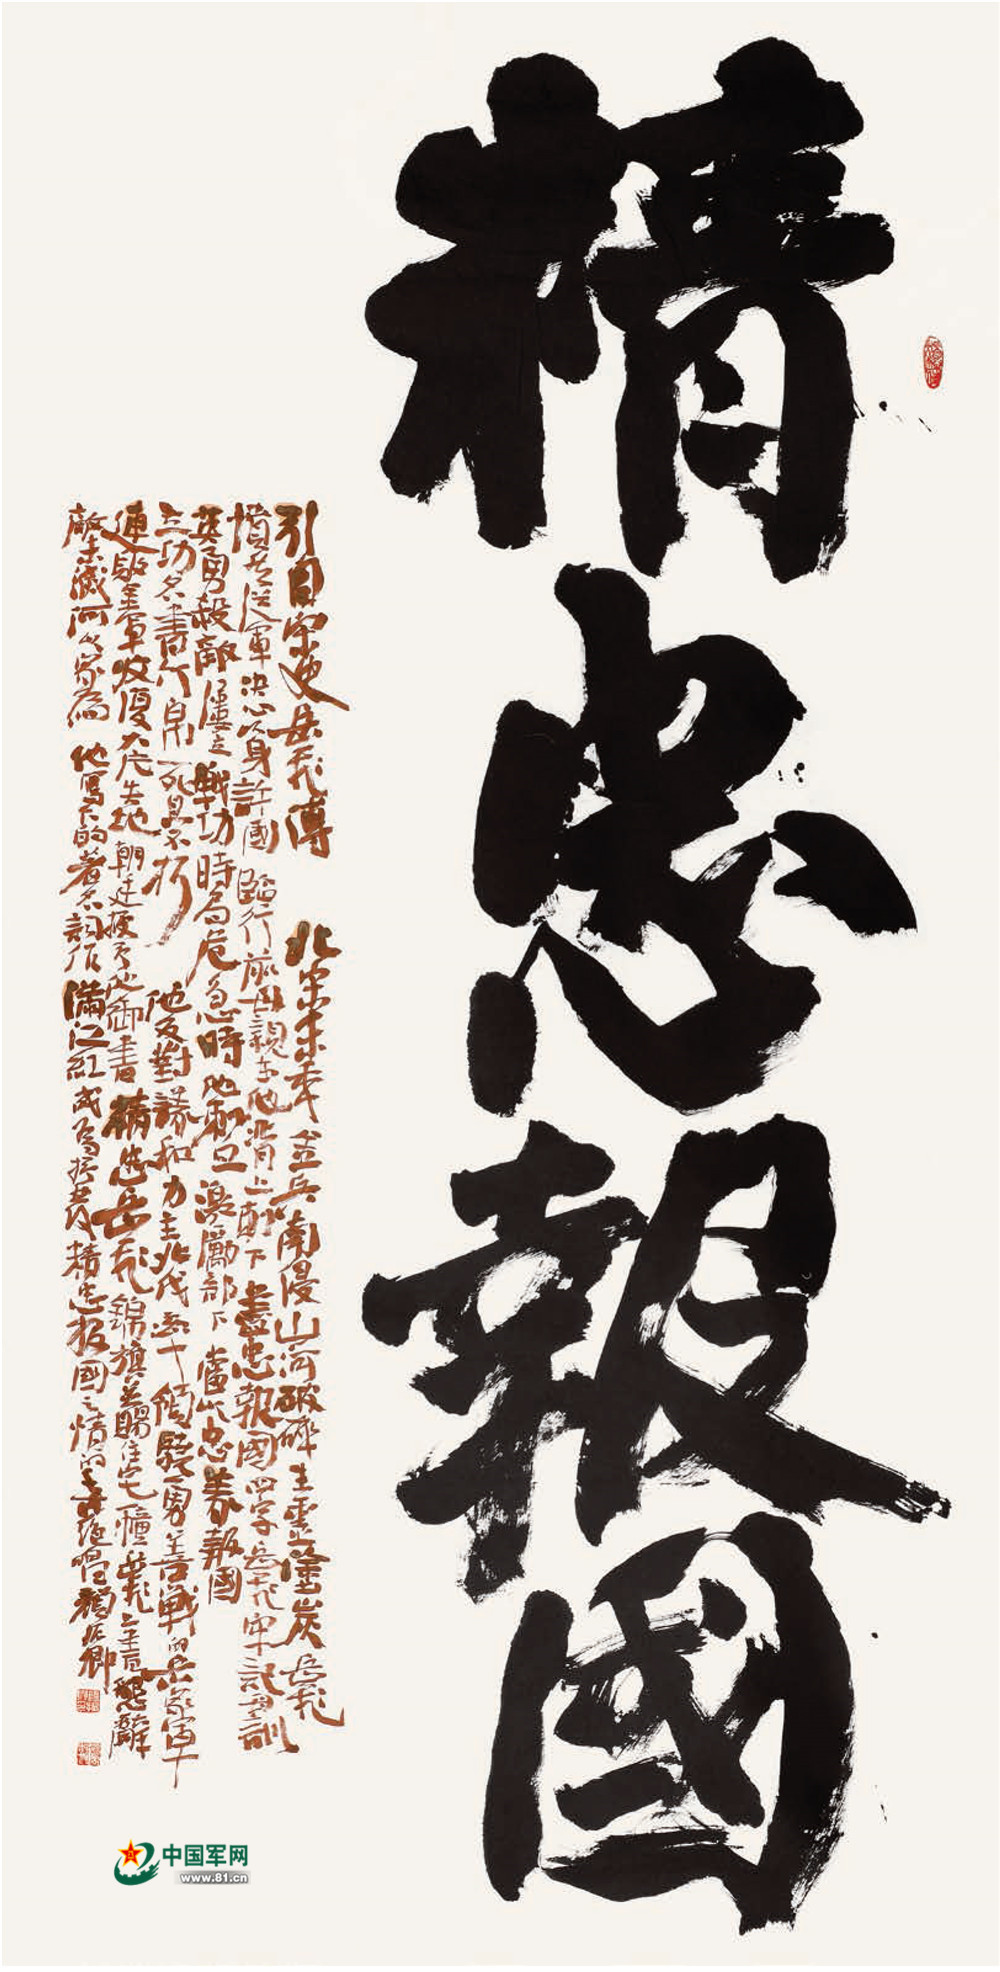 精忠報國
引自宋史岳飛傳 北宋末年金兵南侵山河破碎生靈塗炭岳飛
憤于從軍決心以身許國臨行前母親在他背上刺下盡忠報國四字岳飛牢記母訓
英勇殺敵屢立戰功時局危急時他激勵部下當以忠義報國
立功名書竹帛死且不朽 他反對議和力主北伐驍勇善戰的岳家軍
連敗金軍收復大片失地朝廷授予他御書精忠岳飛錦旗并賜住宅一幢岳飛上書懇辭
敵未滅何以家為 他寫下的著名詞作滿江紅成為抒發精忠報國之情的千古絕唱
中国军网
www.81.cn